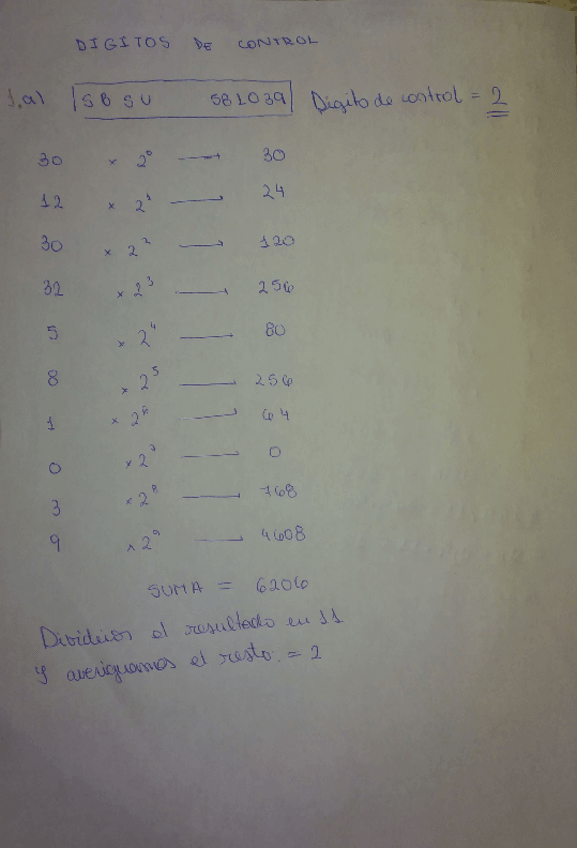 DIGITOS DE CONTROL
1.a) SBSU 581039 Dígito de control = 2
30 × 2⁰ → 30
12 × 2¹ → 24
30 × 2² → 120
32 × 2³ → 256
5 × 2⁴ → 80
8 × 2⁵ → 256
1 × 2⁶ → 64
0 × 2⁷ → 0
3 × 2⁸ → 768
9 × 2⁹ → 4608
SUMA = 6206
Dividimos el resultado en 11
y averiguamos el resto: = 2